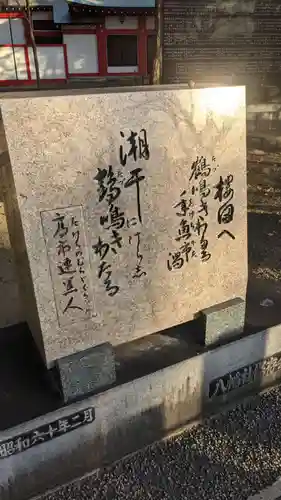 桜田へ
鶴鳴きわたる
年魚市潟
潮干にけらし
鶴鳴きわたる
たけちのむらじくろひと
高市連黒人
昭和六十年二月